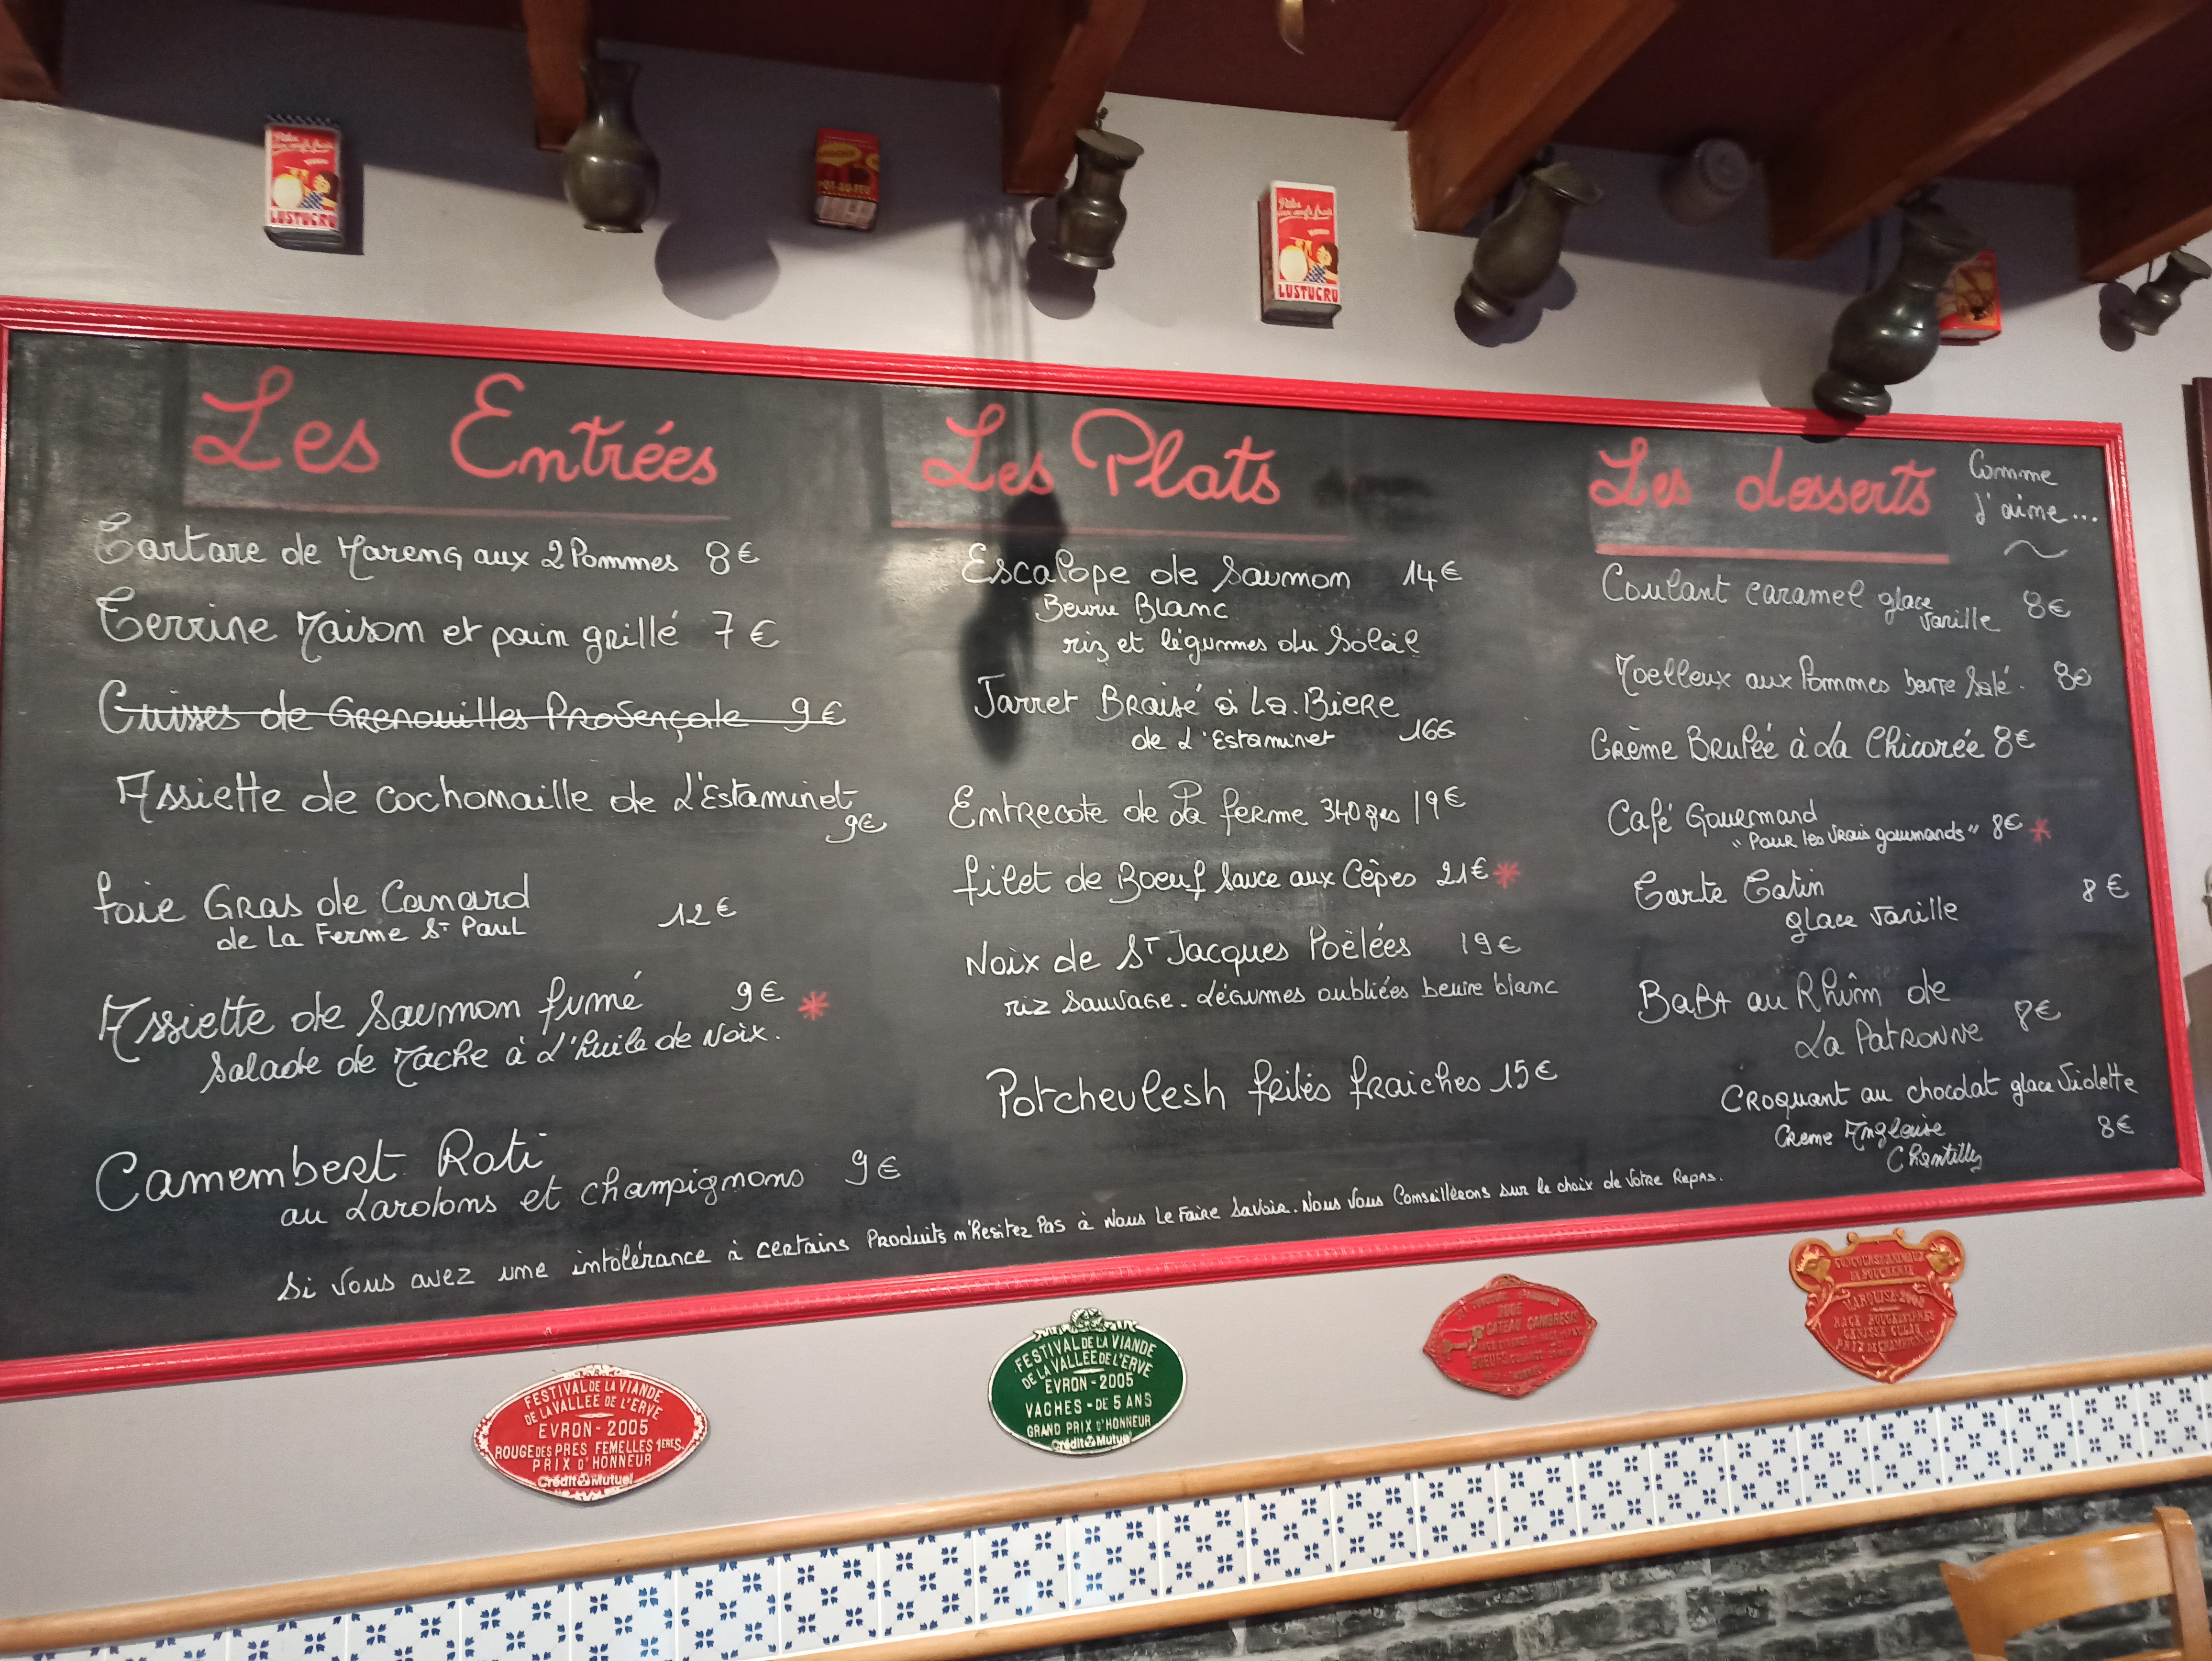 Pâtes
aux œufs frais
LUSTUCRU
POT-AU-FEU
Pâtes
aux œufs frais
LUSTUCRU
Les Entrées
Tartare de Hareng aux 2 Pommes 8€
Terrine Maison et pain grillé 7€
Cuisses de Grenouilles Provençale 9€
Assiette de cochonnaille de L'Estaminet
9€
foie Gras de Canard
de La Ferme St Paul 12€
Assiette de Saumon fumé 9€ *
Salade de Mache à L'huile de Noix.
Camembert Roti
au Lardons et champignons 9€
Les Plats
Escalope de Saumon 14€
Beurre Blanc
riz et légumes du Soleil
Jarret Braisé à La Biere
de L'Estaminet 16€
Entrecote de La ferme 340grs 19€
filet de Boeuf Sauce aux Cêpes 21€ *
Noix de St Jacques Poëlées 19€
riz Sauvage. Légumes oubliées beurre blanc
Potchevlesh frites fraiches 15€
Les desserts
Comme
J'aime...
Coulant caramel glace
vanille 8€
Moelleux aux Pommes beurre Salé. 8€
Crème Brulée à La Chicorée 8€
Café Gourmand
"Pour les Vrais gourmands" 8€ *
Tarte Tatin 8€
glace Vanille
BaBA au Rhûm de
La Patronne 8€
Croquant au chocolat glace Violette
Creme Anglaise 8€
Chantilly
Si Vous avez une intolérance à certains Produits n'hesitez Pas à Nous Le Faire Savoir. Nous Vous Conseillerons sur le choix de Votre Repas.
FESTIVAL DE LA VIANDE
DE LA VALLEE DE L'ERVE
EVRON - 2005
ROUGE DES PRES FEMELLES 1ERES
PRIX D'HONNEUR
Crédit Mutuel
FESTIVAL DE LA VIANDE
DE LA VALLEE DE L'ERVE
EVRON - 2005
VACHES - DE 5 ANS
GRAND PRIX D'HONNEUR
Crédit Mutuel
2005
CATEAU CAMBRESIS
BOEUFS
CONCOURS ANIMAUX
DE BOUCHERIE
MARQUISE
RACE ROUGE DES PRES
GROSSE CULARD
PRIX DE CHAMPIONNAT